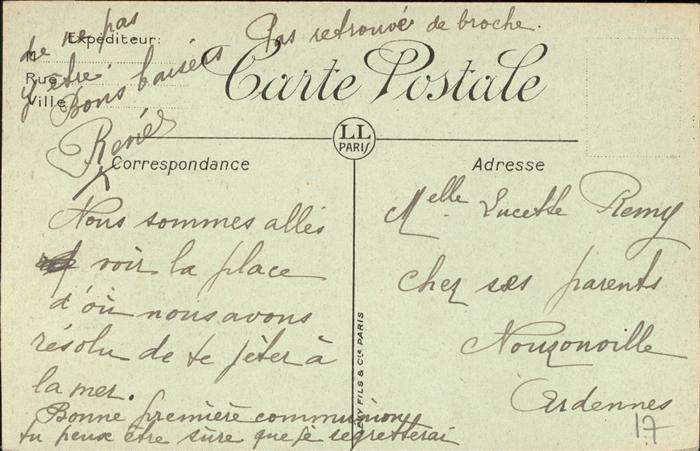 Expéditeur:
M
Rue
Ville
Carte Postale
LL
PARIS
Correspondance
Adresse
Nous sommes allés
voir la place
d'où nous avons
résolu de te jeter à
la mer.
Bonne première communion,
tu peux être sûre que je regretterai
de ne pas
y être
Bons baisers
Renée
Pas retrouvé de broche.
Melle Lucette Remy
chez ses parents
Nouzonville
Ardennes
17
LEVY FILS & Cie PARIS